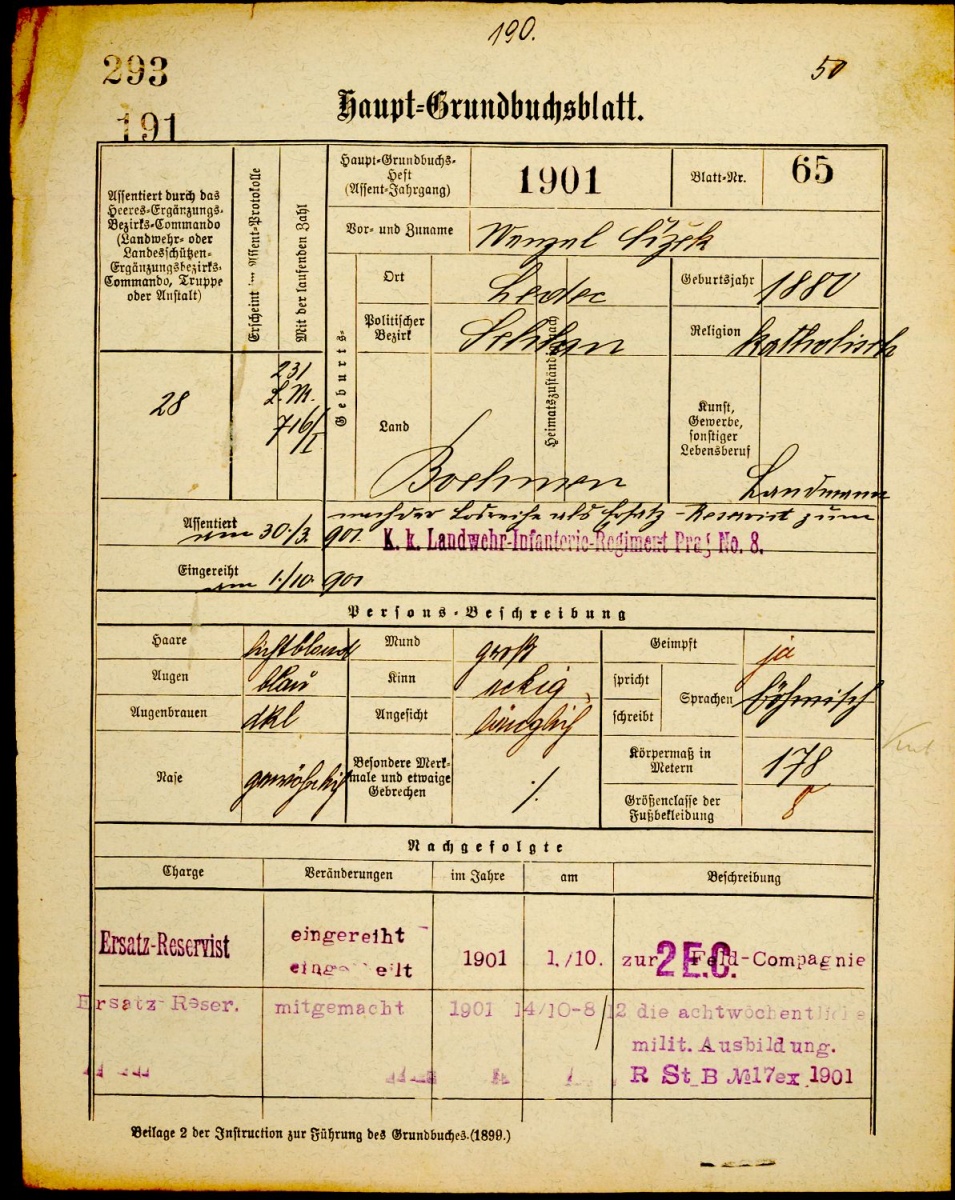 190.
293
50
191
Haupt-Grundbuchsblatt.
Assentiert durch das
Heeres-Ergänzungs-
Bezirks-Commando
(Landwehr- oder
Landesschützen-
Ergänzungsbezirks-
Commando, Truppe
oder Anstalt)
Erscheint im Assent-Protokolle
Mit der laufenden Zahl
Haupt-Grundbuchs-
Heft
(Assent-Jahrgang)
1901
Blatt-Nr.
65
Vor- und Zuname
Wenzel Čížek
Geburts-
Ort
Ledec
Geburtsjahr
1880
Politischer
Bezirk
Heimatszuständig nach
Religion
katholisch
28
231
L. M.
716/I
Land
Boehmen
Kunst,
Gewerbe,
sonstiger
Lebensberuf
Landmann
Assentiert
am 30./3. 901.
nach der Losreihe als Ersatz-Reservist zum
K. k. Landwehr-Infanterie-Regiment Prag No. 8.
Eingereiht
am 1./10. 901
Persons-Beschreibung
Haare
lichtblond
Mund
groß
Geimpft
ja
Augen
blau
Kinn
eckig
spricht
schreibt
Sprachen
böhmisch
Augenbrauen
dkl
Angesicht
länglich
Nase
gewöhnlich
Besondere Merk-
male und etwaige
Gebrechen
./.
Körpermaß in
Metern
178
Größenclasse der
Fußbekleidung
8
Nachgefolgte
Charge
Veränderungen
im Jahre
am
Beschreibung
Ersatz-Reservist
eingereiht
eingeteilt
1901
1./10.
zur 2 E.C. Feld-Compagnie
Ersatz-Reser.
mitgemacht
1901
14/10-8/12
die achtwöchentliche
milit. Ausbildung.
R St B №17ex 1901
Beilage 2 der Instruction zur Führung des Grundbuches. (1899.)